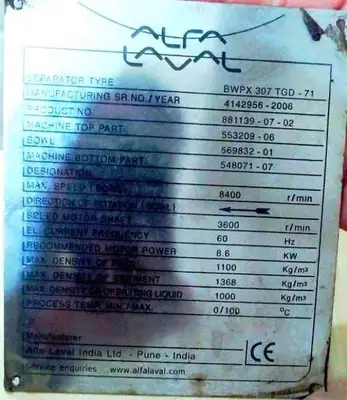 ALFA
LAVAL
SEPARATOR TYPE BWPX 307 TGD - 71
MANUFACTURING SR.NO./ YEAR 4142956 - 2006
PRODUCT NO 881139 - 07 - 02
MACHINE TOP PART 553209 - 06
BOWL 569832 - 01
MACHINE BOTTOM PART 548071 - 07
DESIGNATION
MAX. SPEED (BOWL) 8400 r/min
DIRECTION OF ROTATION (BOWL)
SPEED MOTOR SHAFT 3600 r/min
EL. CURRENT FREQUENCY 60 Hz
RECOMMENDED MOTOR POWER 8.6 KW
MAX. DENSITY OF 1100 Kg/m³
MAX. DENSITY OF SEDIMENT 1368 Kg/m³
MAX DENSITY OF OPERATING LIQUID 1000 Kg/m³
PROCESS TEMP. MIN./ MAX. 0/100 °C
Manufacturer
Alfa Laval India Ltd - Pune - India
Service enquiries www.alfalaval.com
CE